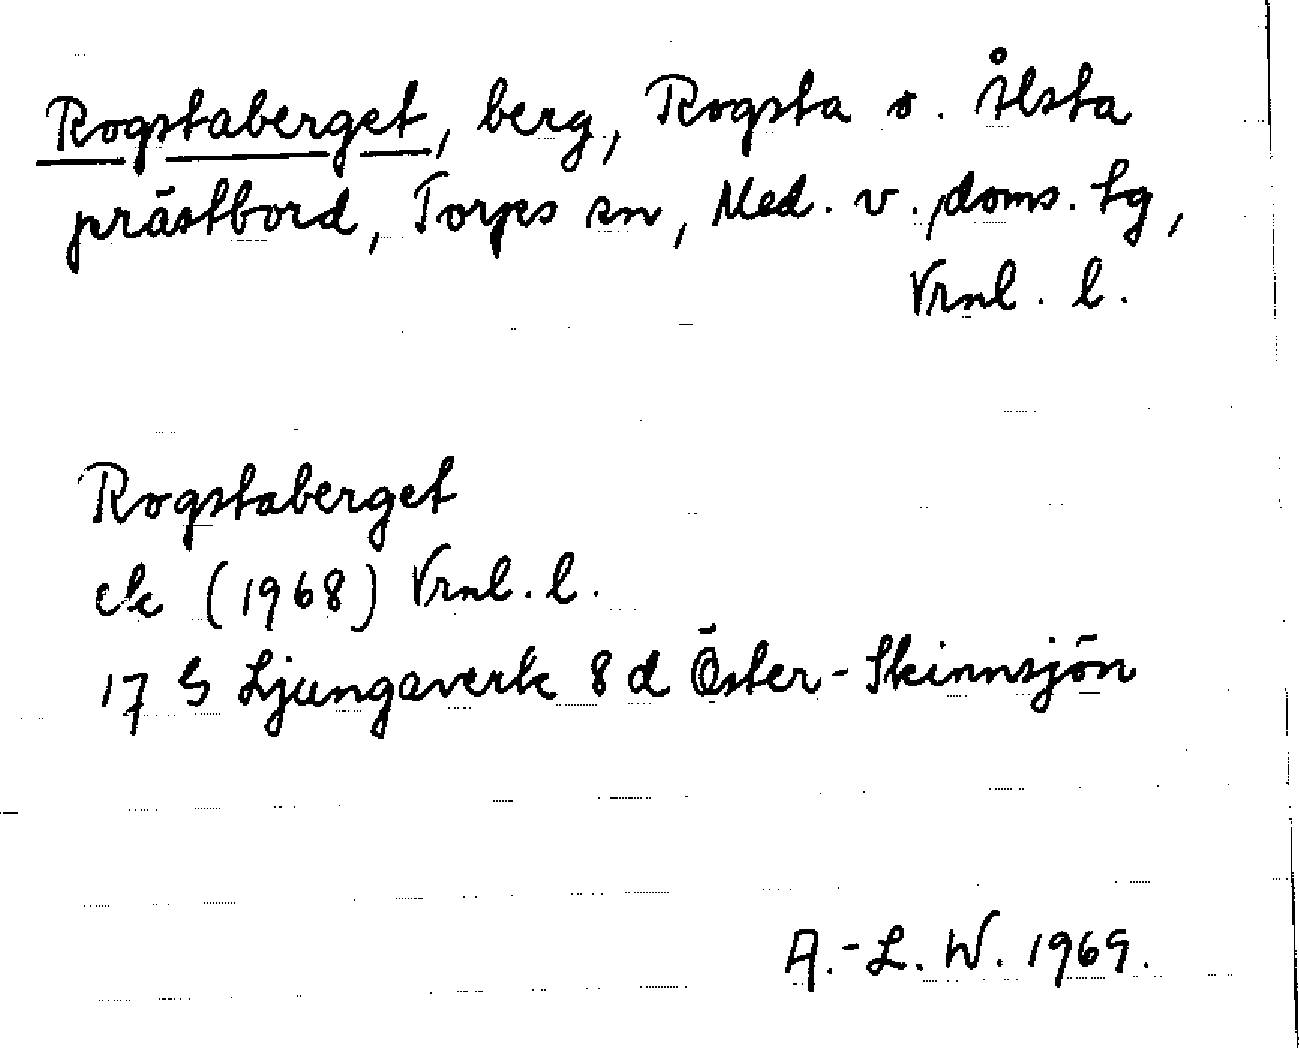 Rogstaberget, berg, Rogsta o. Ålsta
prästbord, Torps sn, Med. v. doms. tg,
Vrnl. l.
Rogstaberget
ek (1968) Vrnl. l.
17 G Ljungaverk 8 d Öster-Skinnsjön
A.-L. W. 1969.